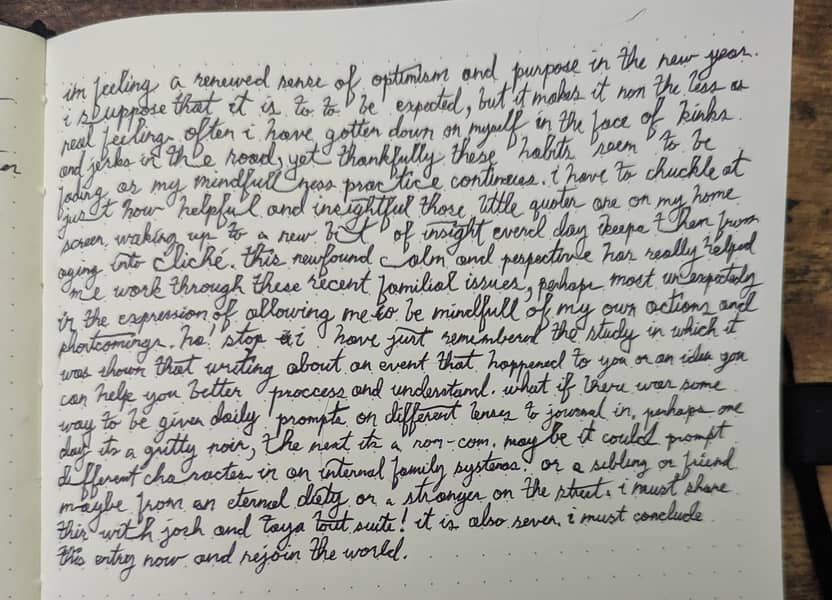 im feeling a renewed sense of optimism and purpose in the new year.
i suppose that it is to to be expected, but it makes it non the less as
real feeling. often i have gotten down on myself in the face of kinks
and jerks in the road, yet thankfully these habits seem to be
fading as my mindfull ness practice continues. i have to chuckle at
just how helpful and insightful those little quotes are on my home
screen, waking up to a new bit of insight every day keeps them from
aging into cliché. this newfound calm and perspective has really helped
me work through these recent familial issues, perhaps most unexpectedly
in the expression of allowing me to be mindfull of my own actions and
shortcomings. ha! stop i have just remembered the study in which it
was shown that writing about an event that happened to you or an idea you
can help you better proccess and understand. what if there was some
way to be given daily prompts on different lenses to journal in, perhaps one
day its a gritty noir, the next its a rom-com. may be it could prompt
different character in an internal family systems? or a sibling or friend
maybe from an eternal diety or a stranger on the street. i must share
this with josh and taya tout suite! it is also seven. i must conclude
this entry now and rejoin the world.